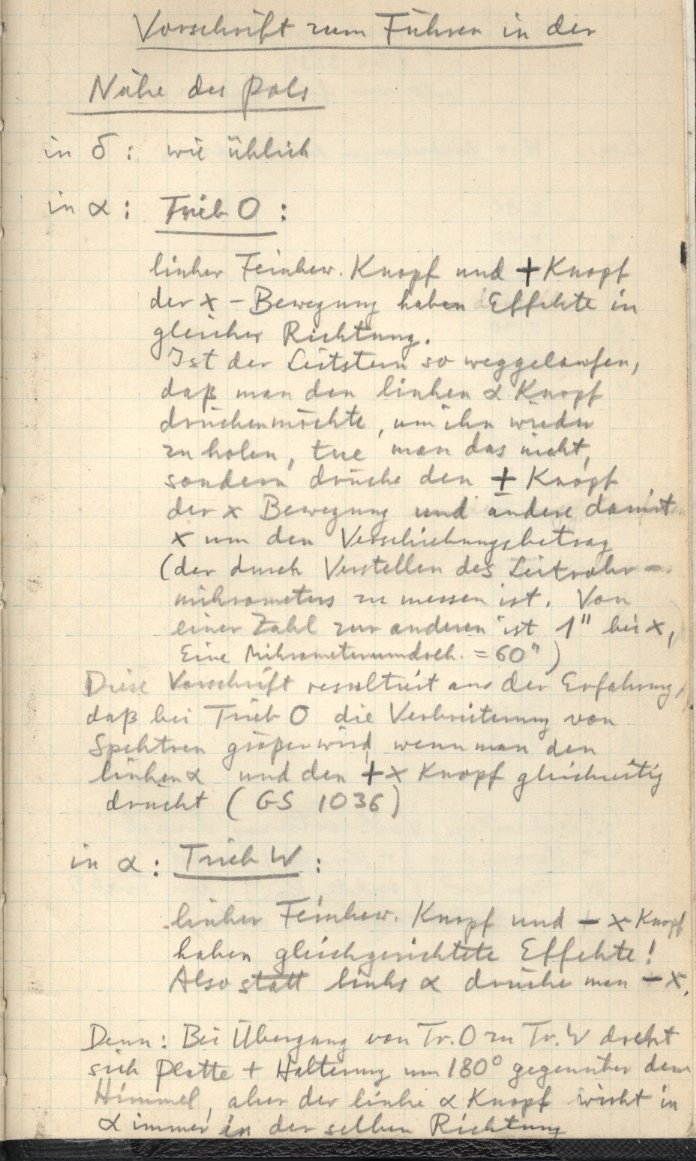 Vorschrift zum Führen in der
Nähe des Pols
in δ: wie üblich
in α: Trieb O:
linker Feinbew. Knopf und + Knopf
der x - Bewegung haben Effekte in
gleicher Richtung.
Ist der Leitstern so weggelaufen,
daß man den linken α Knopf
drücken möchte, um ihn wieder
zu holen, tue man das nicht,
sondern drücke den + Knopf
der x Bewegung und ändere damit
x um den Verschiebungsbetrag
(der durch Verstellen des Leitrohr-
mikrometers zu messen ist. Von
einer Zahl zur anderen ist 1" bei x,
Eine Mikrometerumdreh. = 60")
Diese Vorschrift resultiert aus der Erfahrung,
daß bei Trieb O die Verbreiterung von
Spektren größer wird, wenn man den
linken α und den + x Knopf gleichzeitig
drückt (GS 1036)
in α: Trieb W:
linker Feinbew. Knopf und - x Knopf
haben gleichgerichtete Effekte!
Also statt links α drücke man - x.
Denn: Bei Übergang von Tr. O zu Tr. W dreht
sich Platte + Halterung um 180° gegenüber dem
Himmel, aber der linke α Knopf wirkt in
α immer in der selben Richtung